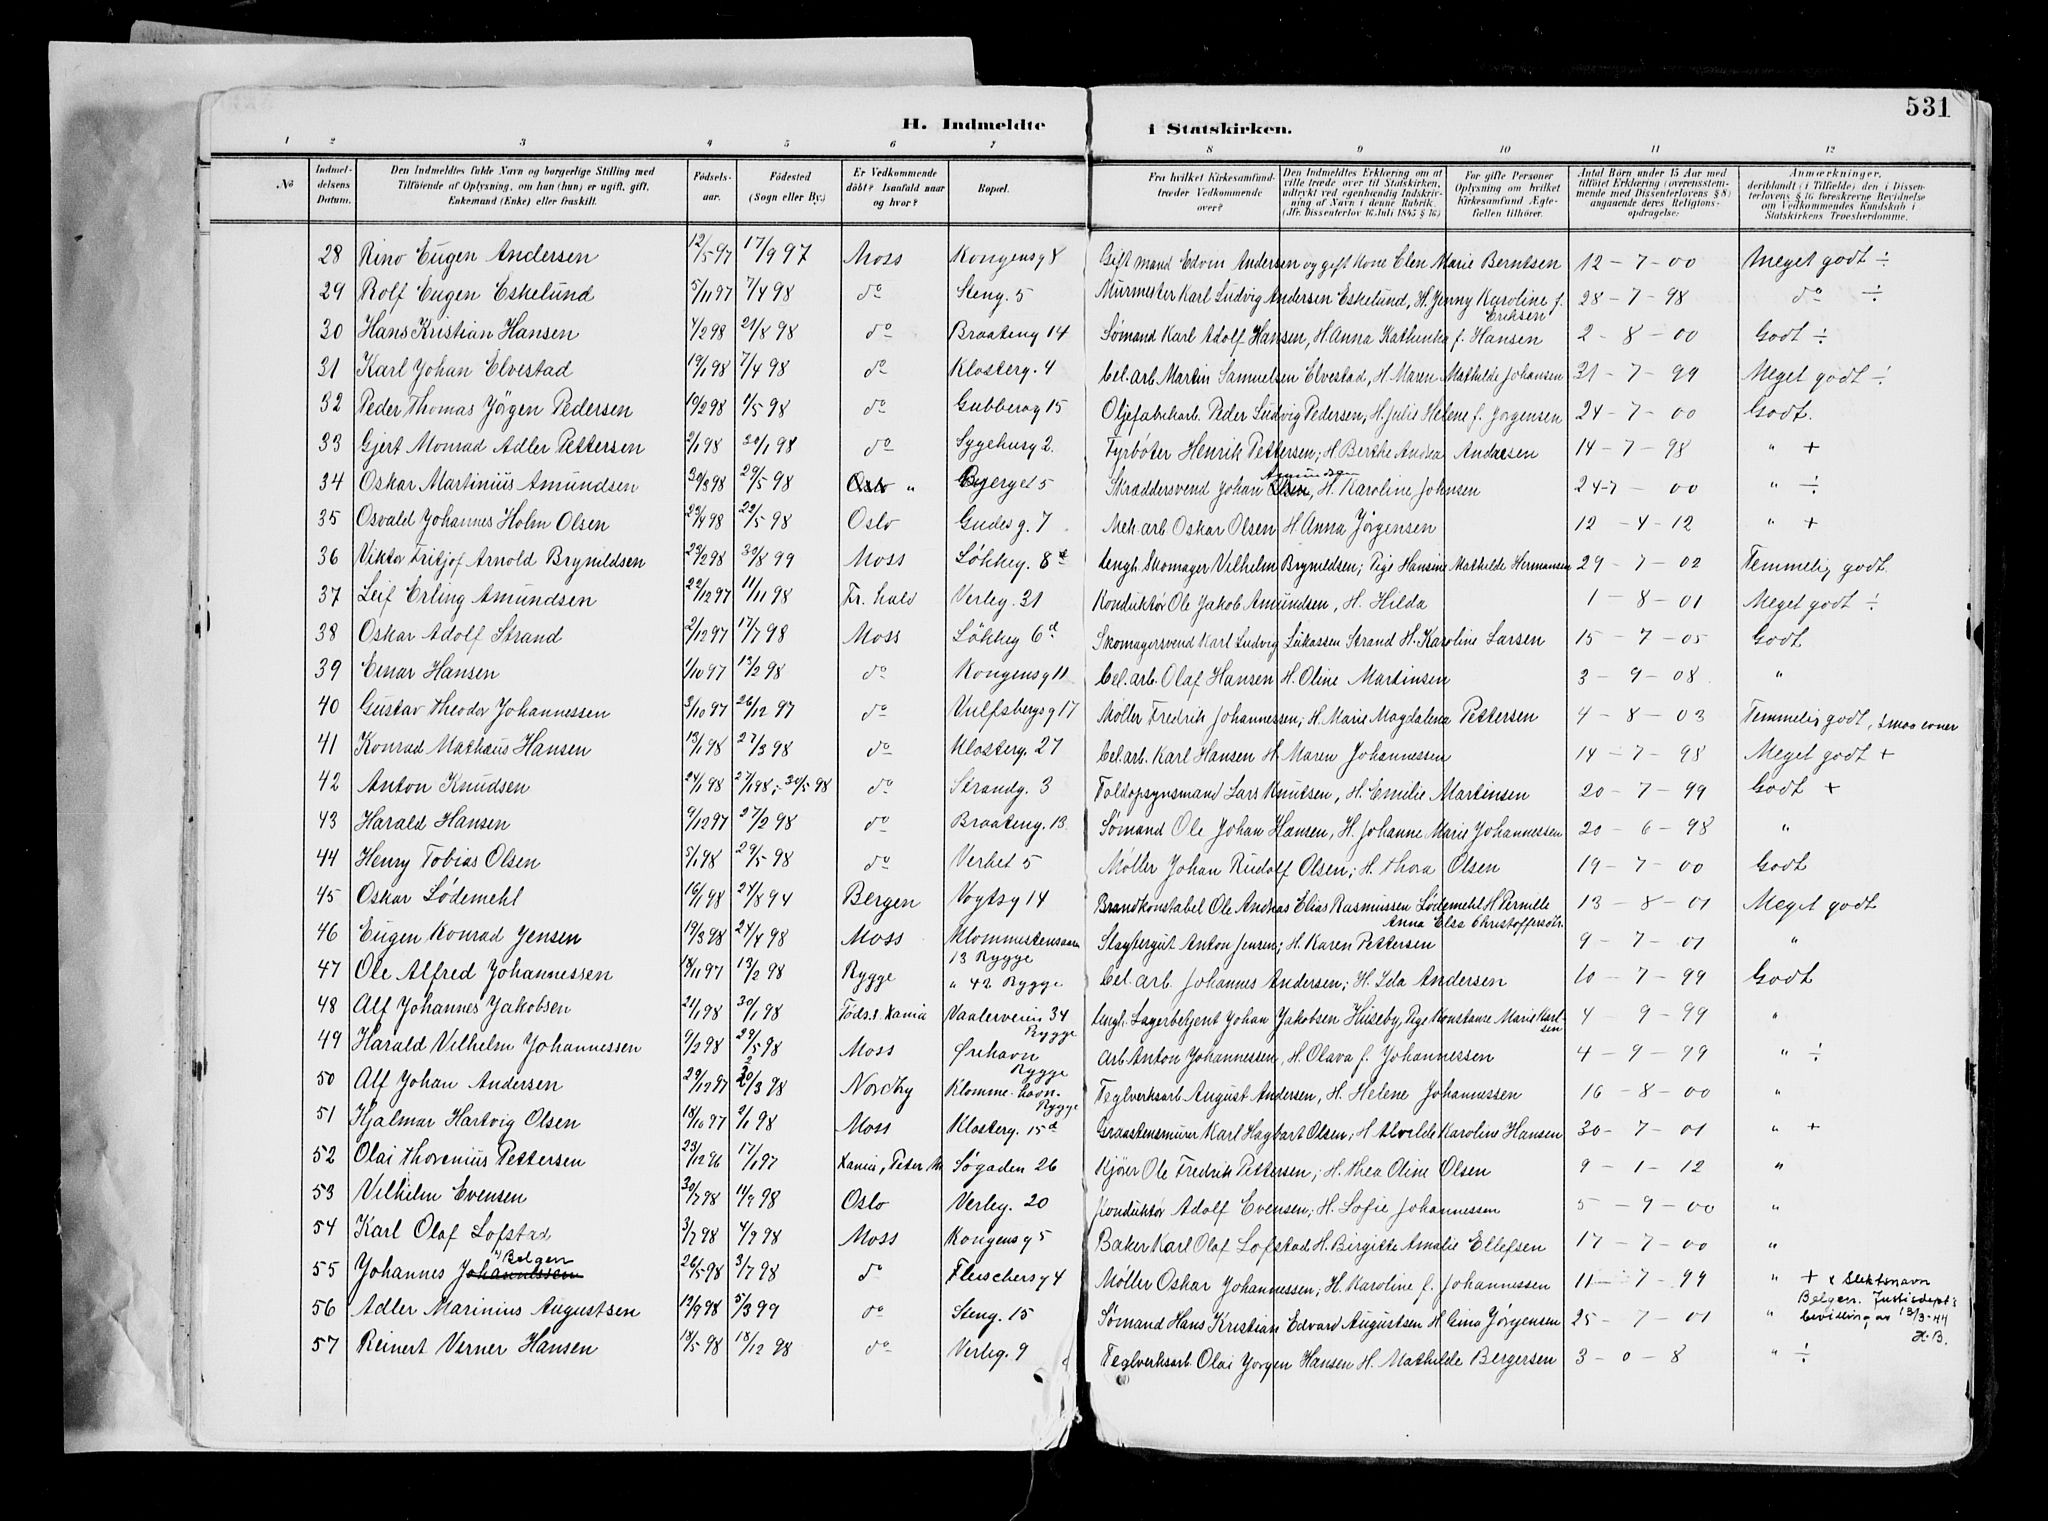 531
H. Indmeldte i Statskirken.
1 2 3 4 5 6 7 8 9 10 11 12
No
Indmeldelsens Datum.
Den Indmeldtes fulde Navn og borgerlige Stilling med Tilföiende af Oplysning, om han (hun) er ugift, gift, Enkemand (Enke) eller fraskilt.
Födselsaar.
Födested (Sogn eller By.)
Er Vedkommende döbt? Isaafald naar og hvor?
Bopæl.
Fra hvilket Kirkesamfund træder Vedkommende over?
Den Indmeldtes Erklæring om at ville træde over til Statskirken, udtrykt ved egenhændig Indskrivning af Navn i denne Rubrik. (Jfr. Dissenterlov 16 Juli 1845 § 16)
For gifte Personer Oplysning om hvilket Kirkesamfund Ægtefællen tilhører.
Antal Börn under 15 Aar med tilföiet Erklæring (overensstemmende med Dissenterlovens § 8) angaaende deres Religionsopdragelse:
Anmærkninger, deriblandt (i Tilfælde) den i Dissenterlovens § 16 foreskrevne Bevidnelse om Vedkommendes Kundskab i Statskirkens Troesherdomme.
28 Rino Eugen Andersen 12/5 97 17/9 97 Moss Kongensg 8 Gift mand Edvin Andersen og gift kone Elen Marie Berntsen 12-7-00 Meget godt ÷
29 Rolf Eugen Eskelund 5/11 97 7/4 98 do Steng. 5 Murmester Karl Ludvig Andersen Eskelund, H. Jenny Karoline f. Eriksen 28-7-98 do ÷
30 Hans Kristian Hansen 4/2 98 21/8 98 do Braateng 14 Sømand Karl Adolf Hansen, H. Anna Kathinka f. Hansen 2-8-00 Godt ÷
31 Karl Johan Elvestad 19/1 98 7/4 98 do Klosterg. 4 Cel. arb. Martin Samuelsen Elvestad, H. Maren Mathilde Johansen 31-7-99 Meget godt ÷
32 Peder Thomas Jörgen Pedersen 10/2 98 1/5 98 do Gubberog 15 Oljefabrikarb. Peder Ludvig Pedersen, H. Julie Helene f. Jørgensen 24-7-00 Godt.
33 Gjert Monrad Adler Pettersen 2/1 98 20/1 98 do Sygehusg 2. Fyrbøter Henrik Pettersen; H Berthe Andrea Andersen 14-7-98 " +
34 Oskar Martinius Amundsen 30/3 98 29/5 98 " Bjerget 5 Skræddersvend Johan Amundsen, H. Karoline Johnsen 24-7-00 " ÷
35 Osvald Johannes Holm Olsen 23/4 98 22/5 98 Oslo Gudes g. 7 Mek. arb Oskar Olsen H Anna Jørgensen 12-4-12 " +
36 Viktor Fritjof Arnold Brynildsen 23/2 98 30/8 99 Moss Løkkeg. 8d Ungk. Skomager Vilhelm Brynildsen; Pige Hansine Mathilde Hermansen 29-7-02 Temmelig godt.
37 Leif Erling Amundsen 22/12 97 11/11 98 Fr. hald Verleg. 31 Konduktør Ole Jakob Amundsen, H. Hilda 1-8-01 Meget godt ÷
38 Oskar Adolf Strand 2/12 97 17/7 98 Moss Løkkeg 6d Skomagersvend Karl Ludvig Lukassen Strand H. Karoline Larsen 15-7-05 Godt
39 Einar Hansen 1/10 97 13/2 98 do Kongensg 11 Cel. arb. Olaf Hansen H. Oline Martinsen 3-9-08. "
40 Gustav Theodor Johannessen 3/10 97 26/12 97 do Vulfsbergsg 17 Møller Fredrik Johannessen; H. Marie Magdalena Pettersen 4-8-03 Temmelig godt, smaa evner
41 Konrad Mathæus Hansen 13/1 98 27/3 98 do Klosterg. 27 Cel. arb. Karl Hansen H. Maren Johannessen 14-7-98 Meget godt +
42 Anton Knudsen 24/1 98 27/1 98; 30/5 98 do Strandg. 3 Toldopsynsmand Lars Knutsen, H. Emilie Martinsen 20-7-99 Godt +
43 Harald Hansen 9/12 97 27/2 98 do Braateng. 13 Sømand Ole Johan Hansen, H. Johanne Marie Johannessen 20-6-98 "
44 Henry Tobias Olsen 5/1 98 29/5 98 do Verket 5 Møller Johan Rudolf Olsen; H. Thora Olsen 19-7-00 Godt
45 Oskar Lødemehl 16/1 98 24/8 94 Bergen Vogtsg 14 Brandkonstabel Ole Andreas Elias Rasmussen Lødemehl H Pernille Anna Elsa Christoffersdtr. 13-8-01 Meget godt
46 Eugen Konrad Jensen 19/3 98 24/4 98 Moss Klommestensaasen 13 Rygge Slagtergut Anton Jensen; H. Karen Pettersen 9-7-01 "
47 Ole Alfred Johannessen 18/11 97 13/2 98 Rygge " 42 Rygge Cel. arb. Johannes Andersen; H. Ida Andersen 10-7-99 Godt
48 Alf Johannes Jakobsen 21/1 98 30/1 98 Føds. s. Xania Vaalerveien 34 Rygge Ungk. Lagerbetjent Johan Jakobsen Huseby, Pige Konstanse Marie Karlsen 4-9-99 "
49 Harald Vilhelm Johannessen 9/2 98 29/5 98 Moss Ørehavn Rygge Arb. Anton Johannessen, H. Olava f. Johannessen 4-9-99 " ÷
50 Alf Johan Andersen 29/12 97 20/3 98 Nordby Klomme.havn. Rygge Teglverksarb. August Andersen, H. Helene Johannessen 16-8-00 "
51 Hjalmar Hartvig Olsen 18/10 97 2/1 98 Moss Klosterg. 15d Graastensmurer Karl Hagbart Olsen; H Alvilde Karoline Hansen 30-7-01 " +
52 Olai Thorenius Pettersen 23/12 96 17/1 97 Xania, Peter Søgaden 26 Kjører Ole Fredrik Pettersen; H. Thea Oline Olsen 9-1-12 "
53 Vilhelm Evensen 30/7 98 11/9 98 Oslo Verleg. 20 Konduktør Adolf Evensen; H. Sofie Johannessen 5-9-00 "
54 Karl Olaf Lofstad 3/7 98 4/9 98 Moss Kongensg 5 Baker Karl Olaf Lofstad H. Birgitte Amalie Ellefsen 17-7-00 "
55 Johannes Johannessen x) Belgen 26/5 98 3/7 98 do Fleischersg 4 Møller Oskar Johannessen, H. Karoline f. Johannessen 11-7-99 " + x Slektsnavn Belgen. Justisdept's bevilling av 13/3-44 H.B.
56 Adler Marinius Augustsen 12/9 98 5/3 99 do Steng. 15 Sømand Hans Kristian Edvard Augustsen H. Gina Jørgensen 25-7-01 "
57 Reinert Verner Hansen 13/5 98 18/12 98 do Verleg. 9 Teglverksarb Olai Jørgen Hansen H. Mathilde Bergersen 3-0-8 " ÷